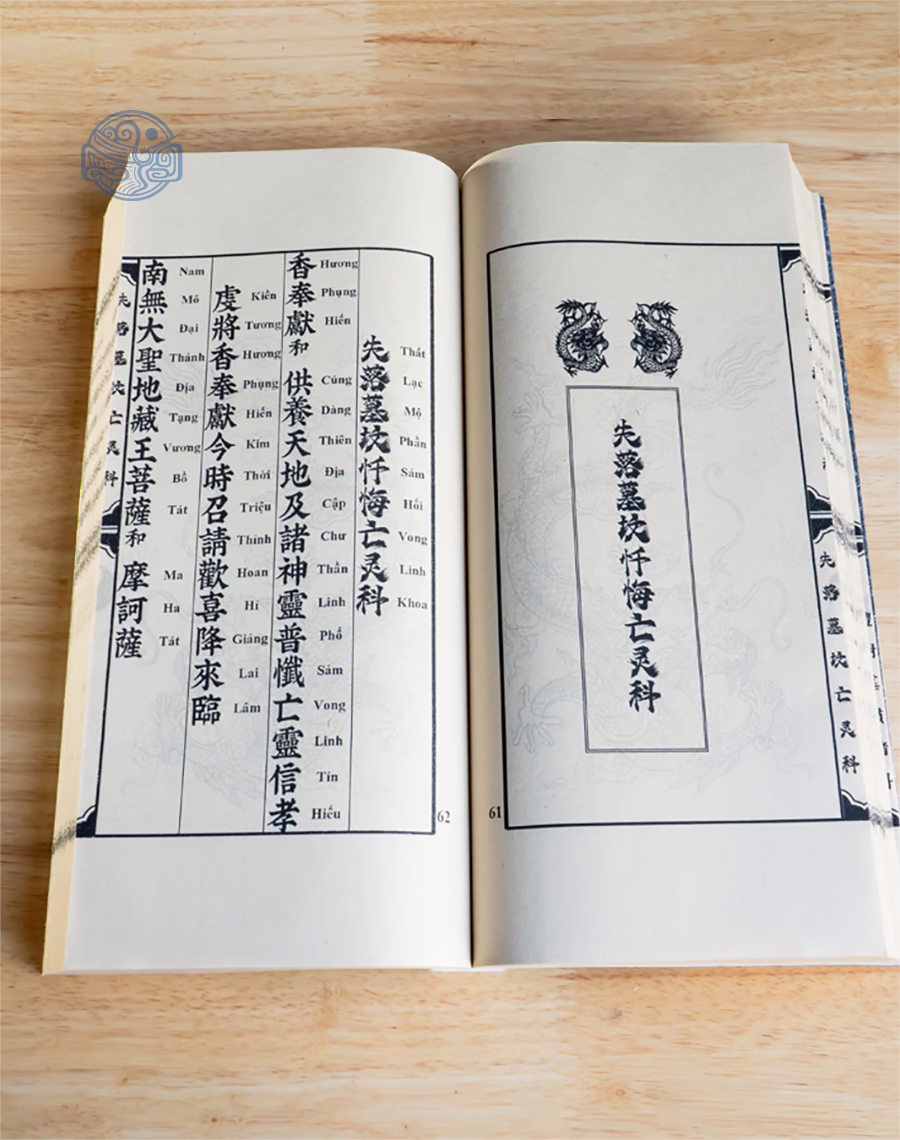 失落墓坎亡灵科
失落墓坎忏悔亡灵科
61
失落墓坎忏悔亡灵科
Thất Lạc Mộ Phần Sám Hối Vong Linh Khoa
香奉獻和供養天地及諸神靈普懺亡靈信孝
Hương Phụng Hiến Cúng Dàng Thiên Địa Cập Chư Thần Linh Phổ Sám Vong Linh Tín Hiếu
虔將香奉獻今時召請歡喜降來臨
Kiền Tương Hương Phụng Hiến Kim Thời Triệu Thỉnh Hoan Hỉ Giáng Lai Lâm
南無大聖地藏王菩薩和摩訶薩
Nam Mô Đại Thánh Địa Tạng Vương Bồ Tát Ma Ha Tát
失落墓坎亡灵科
62